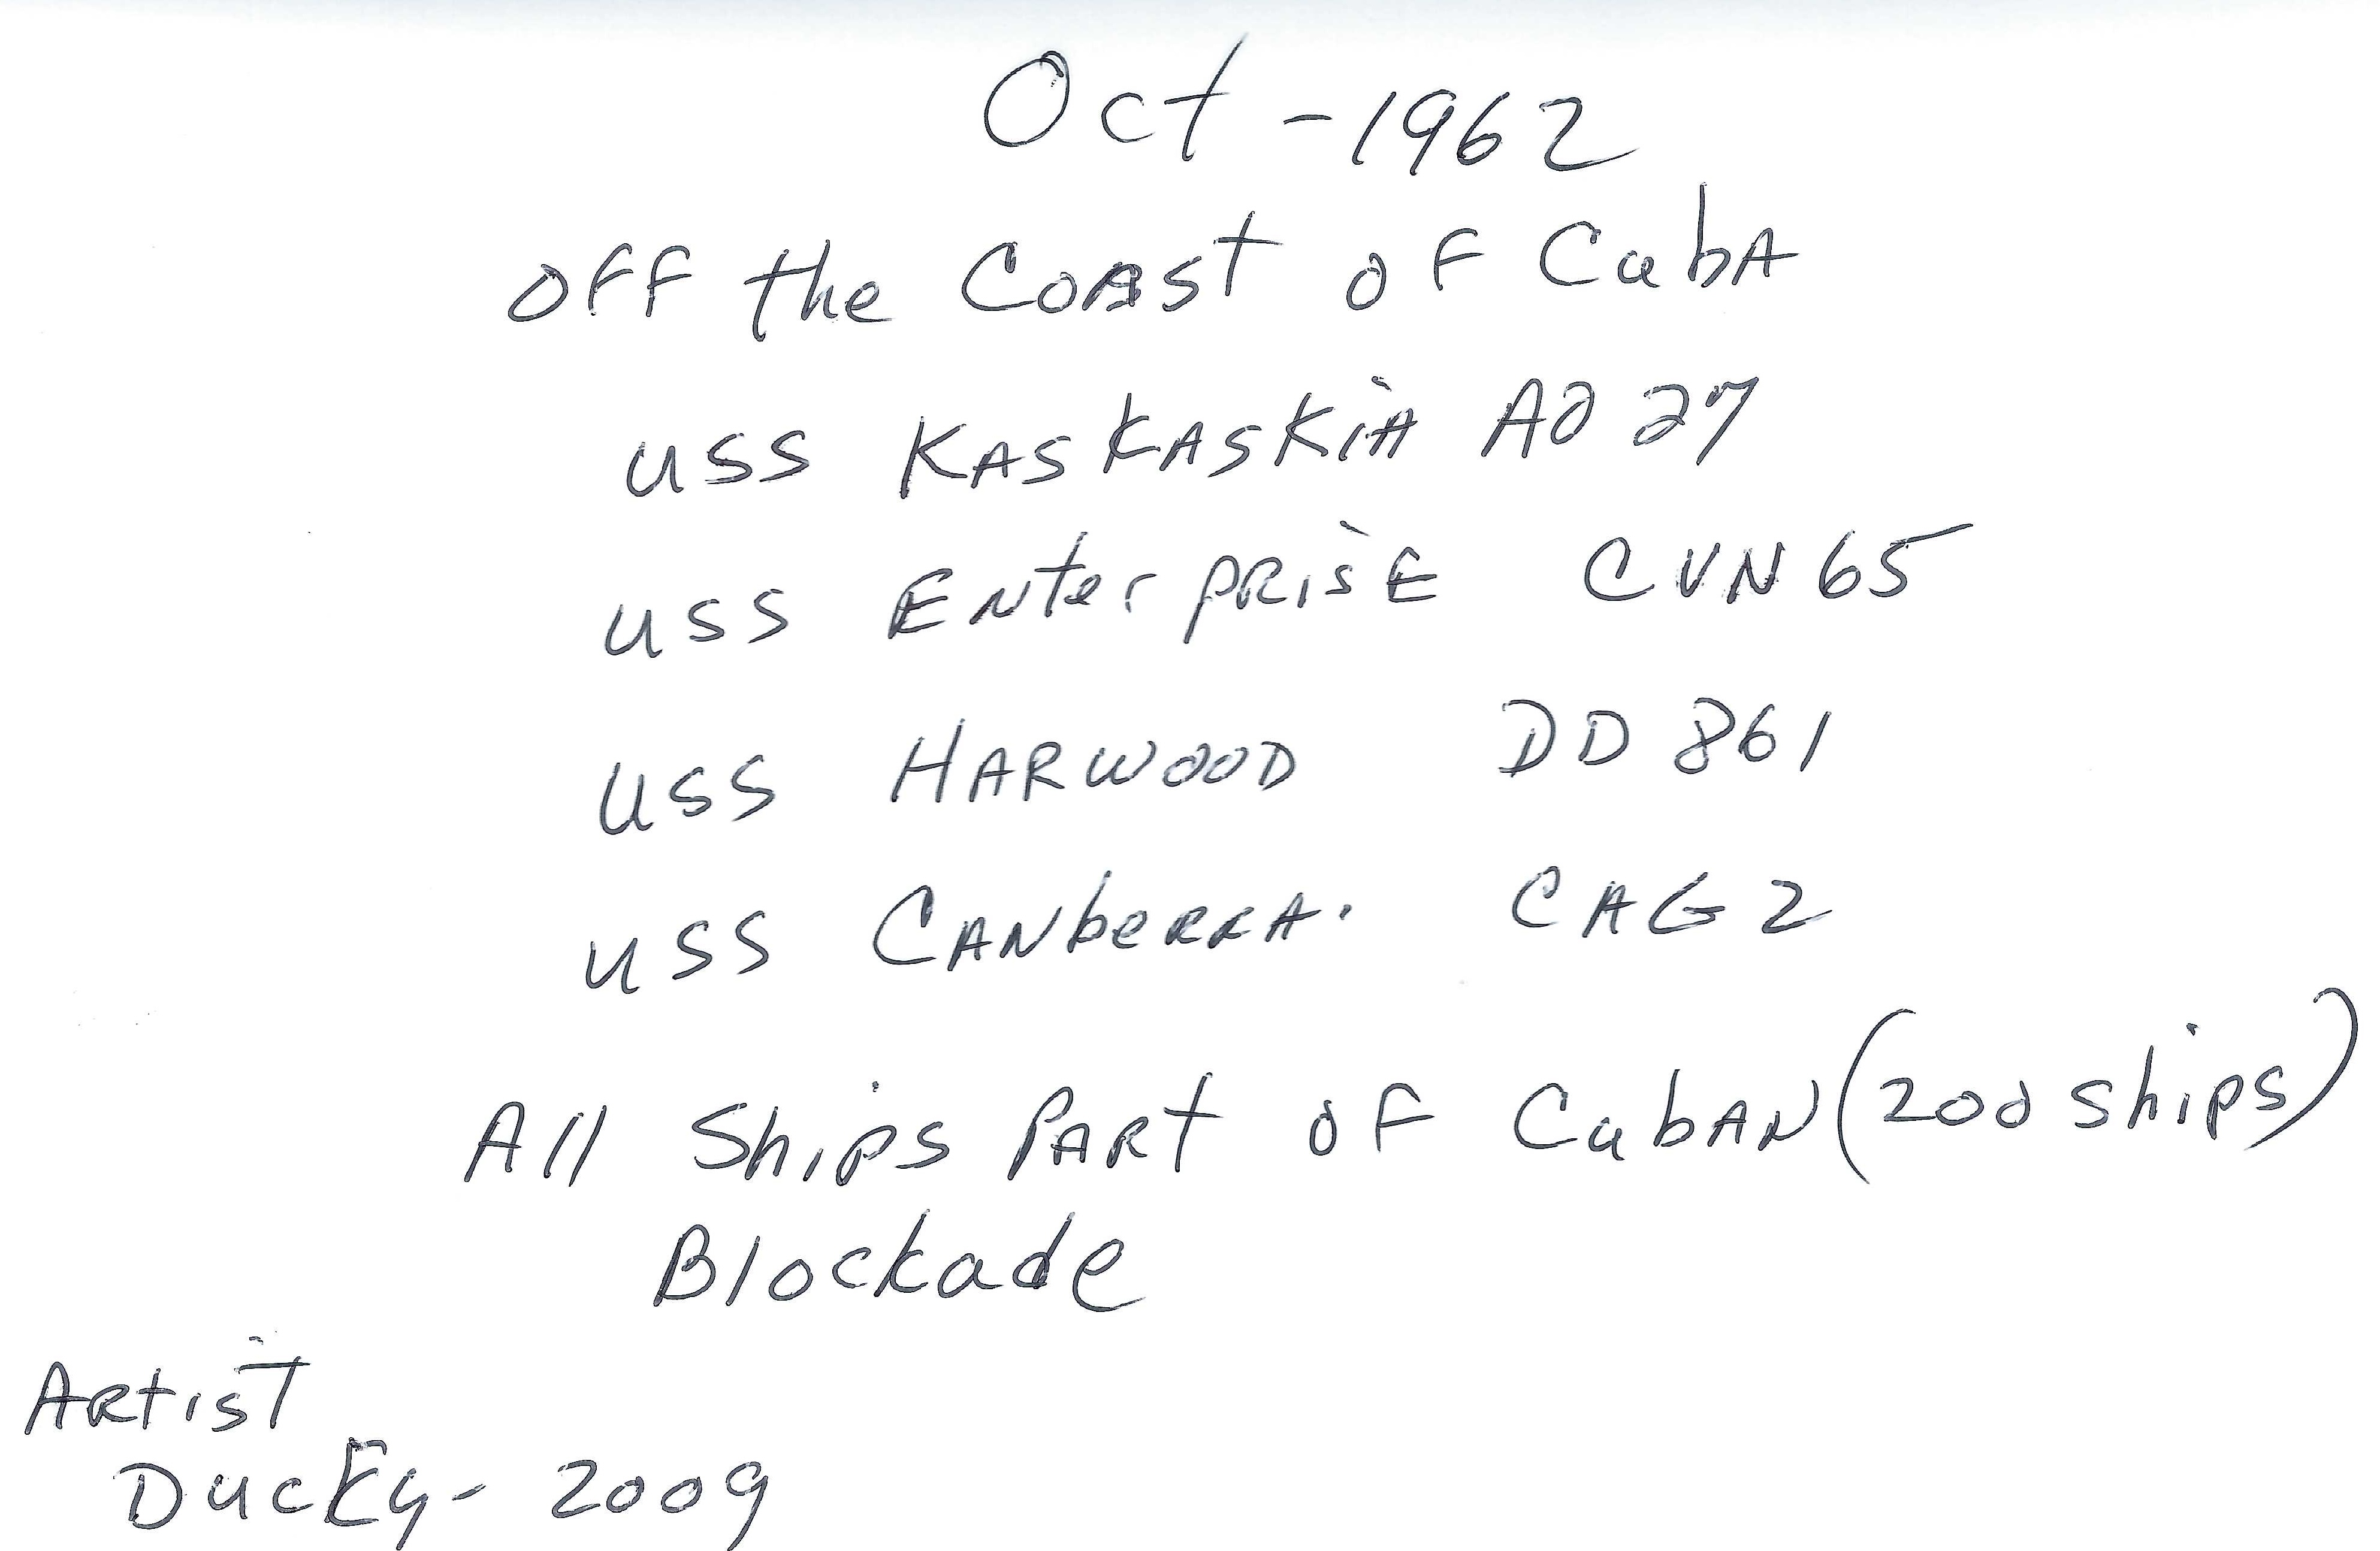 Oct - 1962
OFF the COAST OF CubA
USS KASKASKiA AO 27
USS ENterPRiSE CVN 65
USS HARWOOD DD 861
USS CANbeRRA. CAG 2
All Ships PARt OF CubAN (200 ships)
Blockade
ARtisT
DucKy - 2009